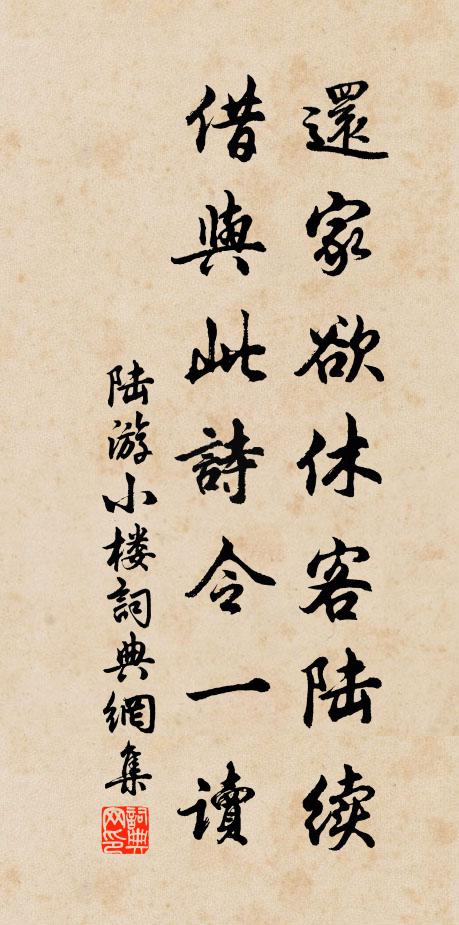 還家欲休客陆續
借與此詩令一讀
陆游小楼詞典網集
詞典网印